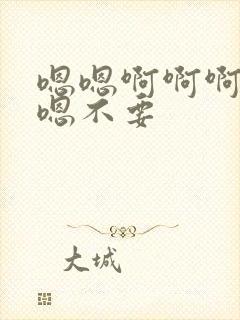 嗯嗯啊啊啊
嗯不要
大城